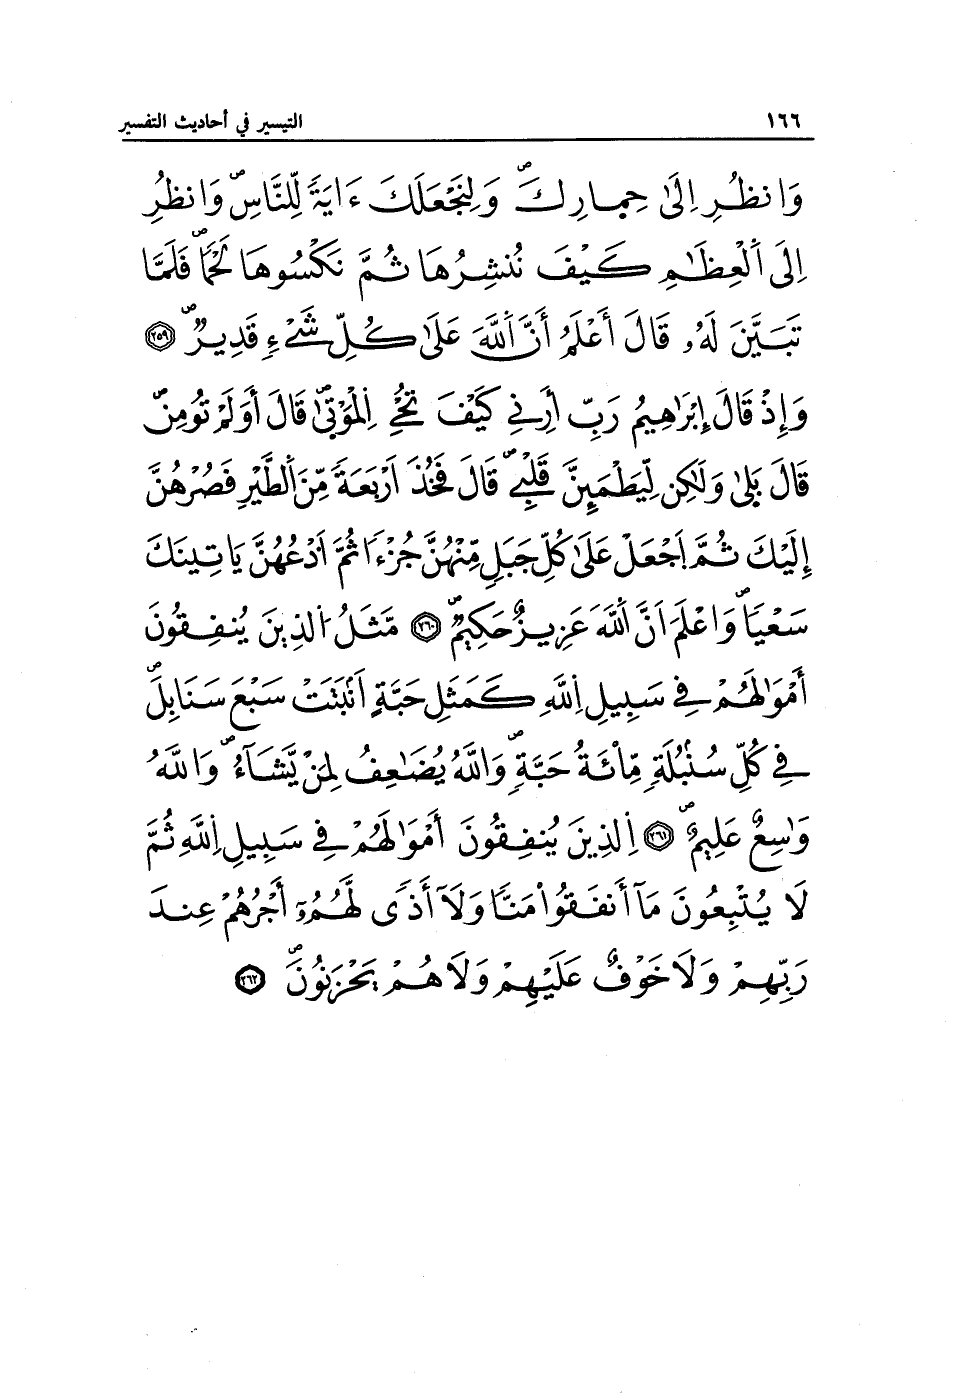 ١٦٦ التيسير في أحاديث التفسير
وَانظُرِ اِلَىٰ حِمارِكَۖ وَلِنَجْعَلَكَ ءَايَةً لِّلنَّاسِۖ وَانظُرِ
اِلَى اَلْعِظَٰمِ كَيْفَ نُنشِرُهَا ثُمَّ نَكْسُوهَا لَحْماًۖ فَلَمَّا
تَبَيَّنَ لَهُۥ قَالَ أَعْلَمُ أَنَّ اَللَّهَ عَلَىٰ كُلِّ شَيْءٍ قَدِيرٌۖ ٢٥٩
وَإِذْ قَالَ إِبْرَٰهِيمُ رَبِّ أَرِنِي كَيْفَ تُحْيِ اِلْمَوْتَىٰۖ قَالَ أَوَلَمْ تُومِنۖ
قَالَ بَلَىٰ وَلَٰكِن لِّيَطْمَئِنَّ قَلْبِيۖ قَالَ فَخُذَ اَرْبَعَةً مِّنَ اَلطَّيْرِ فَصُرْهُنَّ
إِلَيْكَ ثُمَّ اَجْعَلْ عَلَىٰ كُلِّ جَبَلٍ مِّنْهُنَّ جُزْءاً ثُمَّ اَدْعُهُنَّ يَاتِينَكَ
سَعْياًۖ وَاعْلَمَ اَنَّ اَللَّهَ عَزِيزٌ حَكِيمٌۖ ٢٦٠ مَّثَلُ اُلذِينَ يُنفِقُونَ
أَمْوَٰلَهُمْ فِي سَبِيلِ اِللَّهِ كَمَثَلِ حَبَّةٍ اَنۢبَتَتْ سَبْعَ سَنَابِلَۖ
فِي كُلِّ سُنۢبُلَةٍ مِّاْئَةُ حَبَّةٍۖ وَاللَّهُ يُضَٰعِفُ لِمَنْ يَّشَآءُۖ وَاللَّهُ
وَٰسِعٌ عَلِيمٌۖ ٢٦١ اِلذِينَ يُنفِقُونَ أَمْوَٰلَهُمْ فِي سَبِيلِ اِللَّهِ ثُمَّ
لَا يُتْبِعُونَ مَآ أَنفَقُواْ مَنّاً وَلَآ أَذًى لَّهُمُۥٓ أَجْرُهُمْ عِندَ
رَبِّهِمْ وَلَا خَوْفٌ عَلَيْهِمْ وَلَا هُمْ يَحْزَنُونَۖ ٢٦٢